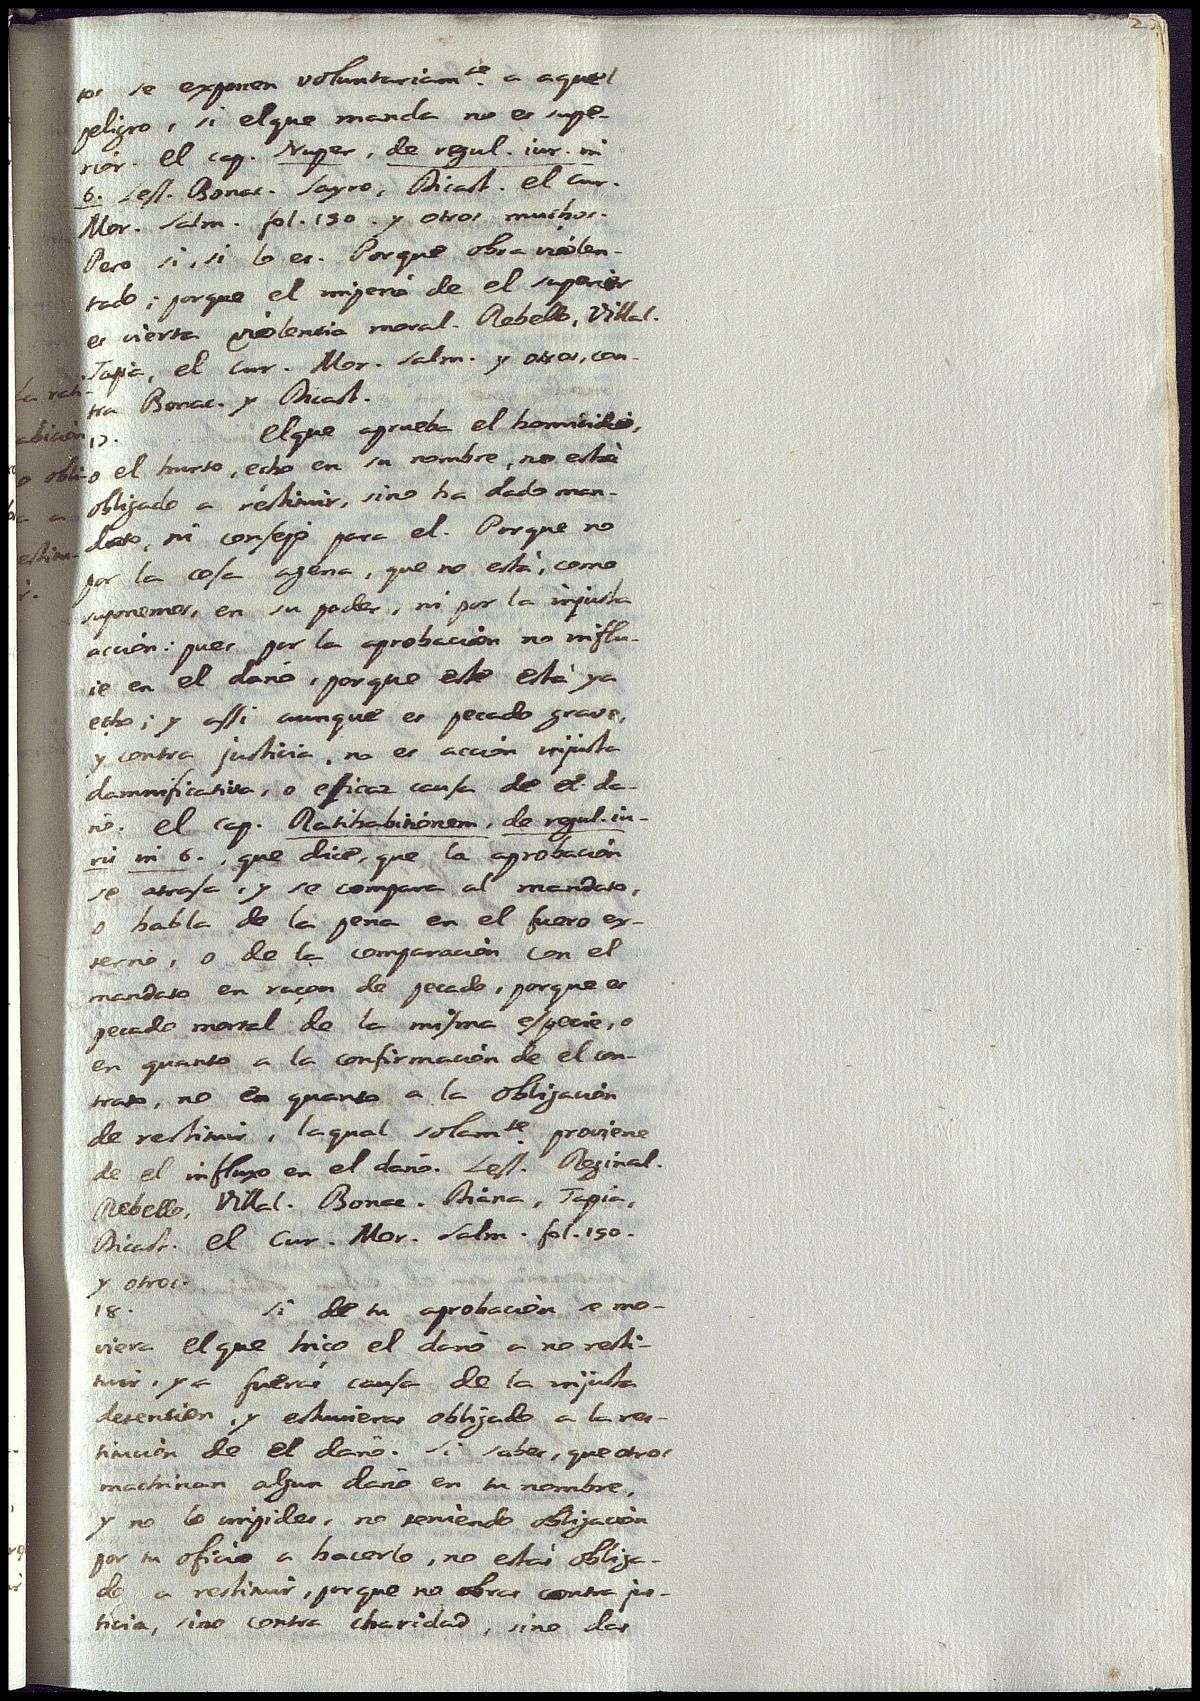 tos se exponen voluntariam.te a aquel
peligro, si el que manda no es supe-
rior. el cap. Nuper, de regul. iur. in
6. Less. Bonac. Sayro, Dicast. el Cur.
Mor. Salm. fol. 150. y otros muchos.
Pero si, si lo es. Porque obra violen-
tado; porque el imperio de el superior
es cierta violencia moral. Rebello, Villal.
Tapia, el Cur. Mor. Salm. y otros, con-
tra Bonac. y Dicast.
17. El que aprueba el homicidio,
o el hurto, echo en su nombre, no està
obligado a restituir, sino ha dado man-
dato, ni consejo para el. Porque no
por la cosa agena, que no està, como
suponemos, en su poder, ni por la injusta
acción: pues por la aprobación no influ-
ie en el daño, porque este està ya
echo; y assi aunque es pecado grave,
y contra justicia, no es acción injusta
damnificativa, o eficaz causa de el da-
ño. el cap. Ratihabitionem, de regul. iu-
ris in 6., que dice, que la aprobación
se atrasa, y se compara al mandato,
o habla de la pena en el fuero ex-
terno, o de la comparación con el
mandato en raçon de pecado, porque es
pecado mortal de la misma especie, o
en quanto a la confirmación de el con-
trato, no en quanto a la obligación
de restituir, la qual solam.te proviene
de el influxo en el daño. Less. Reginal.
Rebello, Villal. Bonac. Diana, Tapia,
Dicast. el Cur. Mor. Salm. fol. 150.
y otros.
18. Si de tu aprobación se mo-
viera el que hiço el daño a no resti-
tuir, ya fueras causa de la injusta
detención, y estuvieras obligado a la res-
titución de el daño. Si sabes, que otros
machinan algun daño en tu nombre,
y no lo impides, no teniendo obligación
por tu oficio a hacerlo, no estàs obliga-
do a restituir, porque no obras contra jus-
ticia, sino contra charidad, sino das
la rati-
abición
o obli-
a a
estitu-
r.